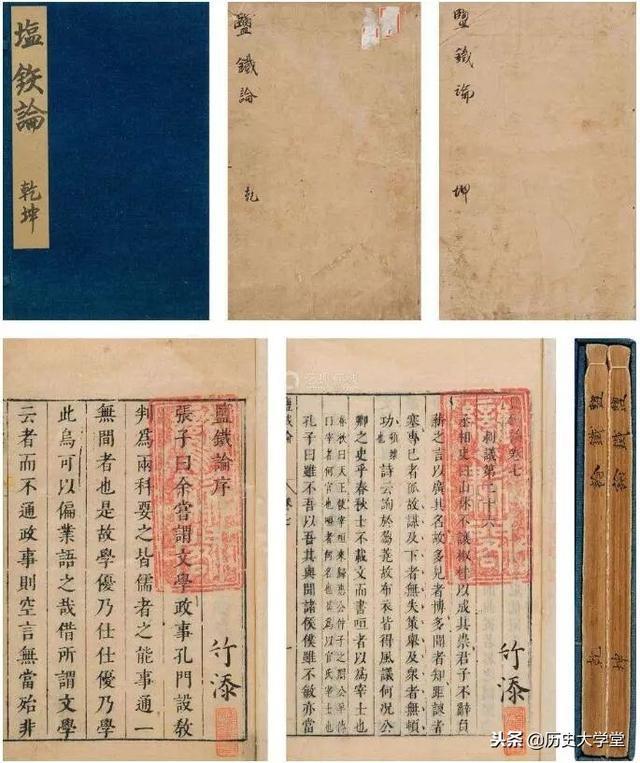 塩鉄論
乾坤
鹽鐵論
乾
鹽鐵論
坤
鹽鐵論序
張子曰余嘗謂文學政事孔門設敎
判爲兩科要之皆儒者之能事通一
無間者也是故學優乃仕仕優乃學
此烏可以偏業語之哉借所謂文學
云者而不通政事則空言無當始非
竹添
鹽鐵論卷七
刺議第二十六
丞相史曰山林不讓椒桂以成其崇君子不辭負
薪之言以廣其名故多見者博多聞者知距諫者
塞專己者孤故謀及下者無失策舉及衆者無頓
功 詩云詢於芻蕘故布衣皆得風議何況公
卿之史乎春秋士不載文而書咺者以爲宰士也
春秋曰天王使宰咺來歸惠公仲子之賵公羊傳
曰宰士者何官也咺者何名也
孔子曰雖不吾以吾其與聞諸侯僕雖不敏亦當
鹽鐵論 卷七
竹添
鹽鐵論 坤
鹽鐵論 乾
头条 @历史大学堂